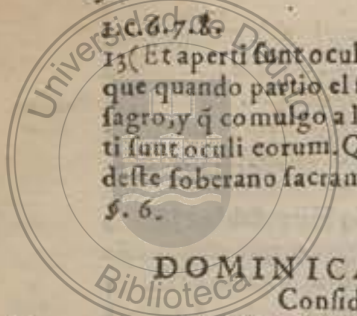 1.c.6.7.8.
13(Et aperti sunt ocul
que quando partio el
sagro, y q̃ comulgo a l
ti sunt oculi eorum. Q
deste soberano sacran
§. 6.
DOMINICA
Consid
Universidad de
Biblioteca